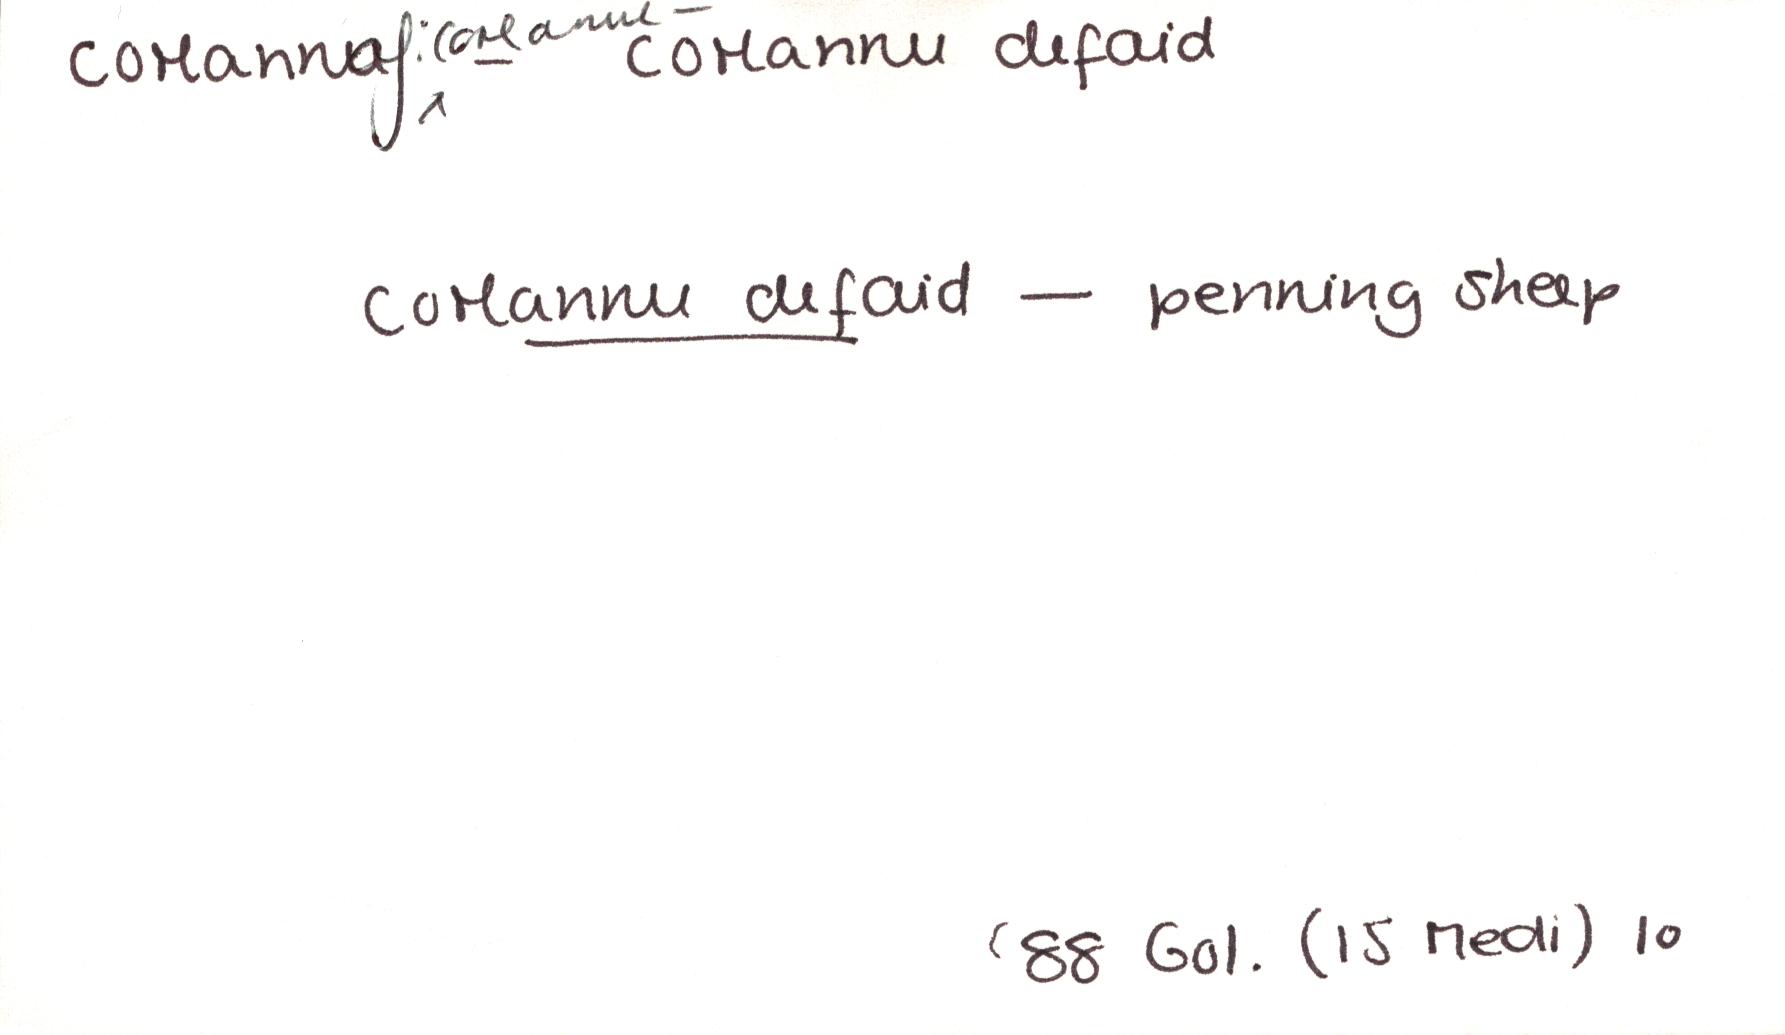 corlannaf: corlannu – corlannu defaid
corlannu defaid — penning sheep
'88 Gol. (15 Medi) 10